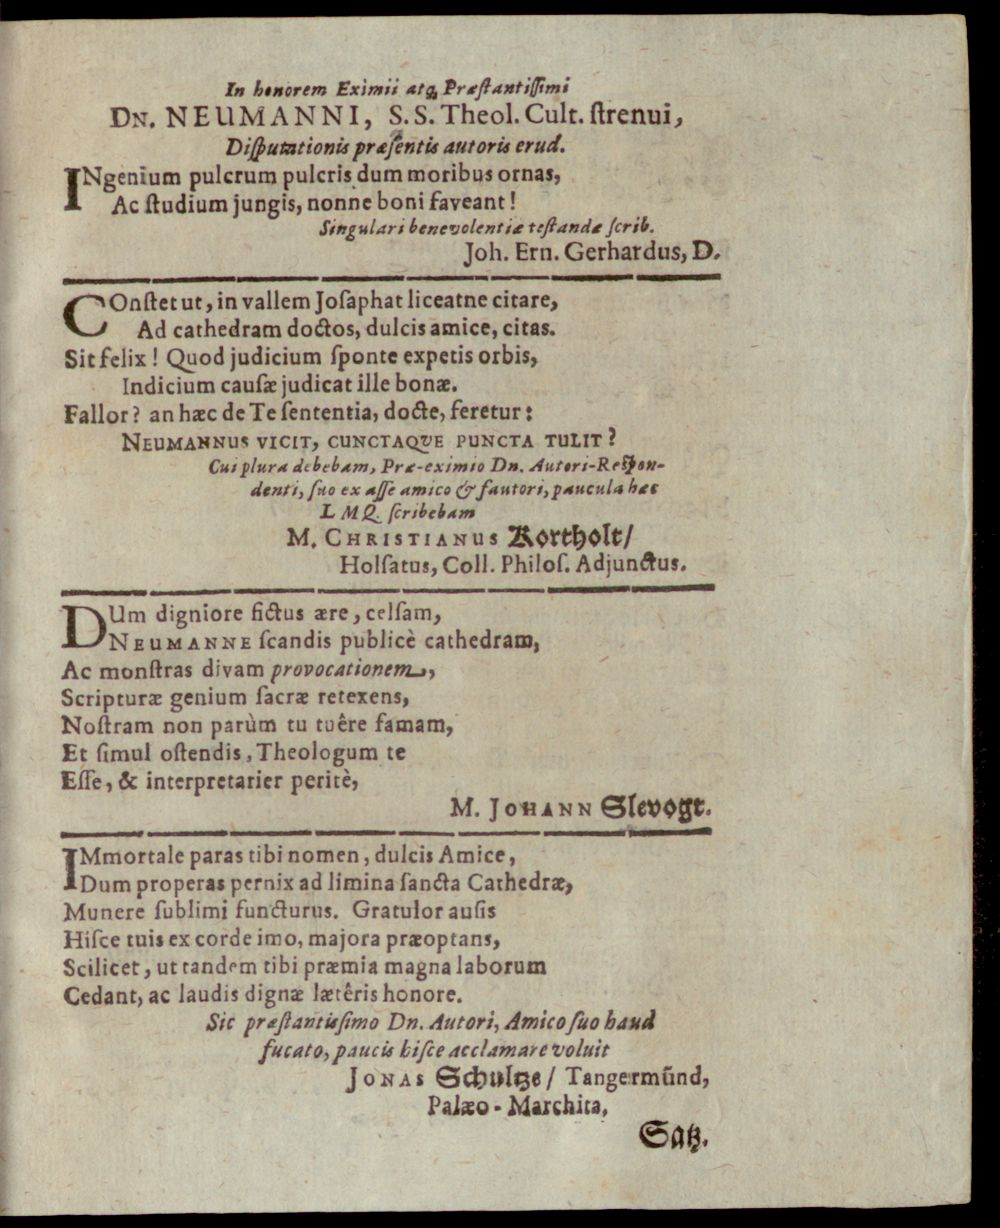 In honorem Eximii atq; Præſtantiſſimi
DN. NEUMANNI, S.S. Theol. Cult. ſtrenui,
Diſputationis præſentis autoris erud.
INgenium pulcrum pulcris dum moribus ornas,
Ac ſtudium jungis, nonne boni faveant!
Singulari benevolentiæ teſtandæ ſcrib.
Joh. Ern. Gerhardus, D.
COnſtet ut, in vallem Joſaphat liceatne citare,
Ad cathedram doctos, dulcis amice, citas.
Sit felix! Quod judicium ſponte expetis orbis,
Indicium cauſæ judicat ille bonæ.
Fallor? an hæc de Te ſententia, docte, feretur:
NEUMANNUS VICIT, CUNCTAQVE PUNCTA TULIT?
Cui plura debebam, Præ-eximio Dn. Autori-Reſpon-
denti, ſuo ex aſſe amico & fautori, paucula hæc
L MQ. ſcribebam
M. CHRISTIANUS Kortholt/
Holſatus, Coll. Philoſ. Adjunctus.
DUm digniore fictus ære, celſam,
NEUMANNE ſcandis publicè cathedram,
Ac monſtras divam provocationem,
Scripturæ genium ſacræ retexens,
Noſtram non parùm tu tuêre famam,
Et ſimul oſtendis, Theologum te
Eſſe, & interpretarier peritè,
M. JOHANN Slevogt.
IMmortale paras tibi nomen, dulcis Amice,
Dum properas pernix ad limina ſancta Cathedræ,
Munere ſublimi functurus. Gratulor auſis
Hiſce tuis ex corde imo, majora præoptans,
Scilicet, ut tandem tibi præmia magna laborum
Cedant, ac laudis dignæ lætêris honore.
Sic præſtantiſsimo Dn. Autori, Amico ſuo haud
fucato, paucis hiſce acclamare voluit
JONAS Schultze/ Tangermünd,
Palæo-Marchita,
Satz.